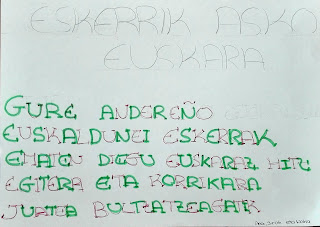 ESKERRIK ASKO
EUSKARA
GURE ANDEREÑO
EUSKALDUNEI ESKERRAK
EMATEN DIEGU EUSKARAZ HITZ
EGITERA ETA KORRIKARA
JUATEA BULTZATZEAGATIK